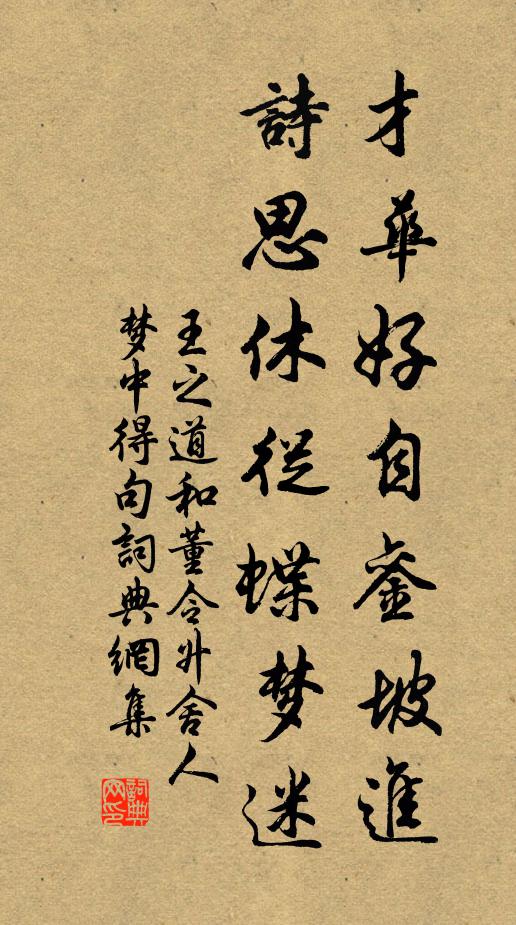 才華好自銮坡進
詩思休從蝶梦迷
王之道和董令升舍人
梦中得句詞典網集
詞典网印